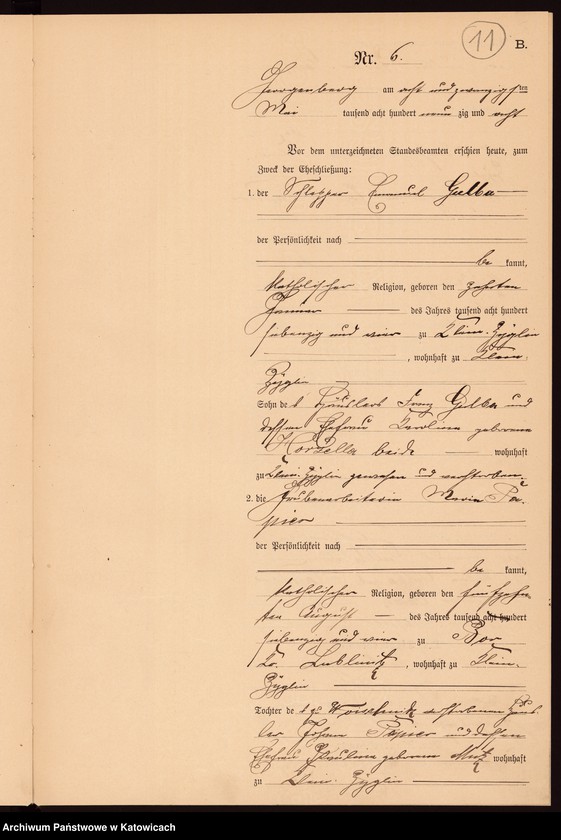 11
B.
Nr. 6.
Georgenberg am acht und zwanzigsten
Mai tausend acht hundert neun zig und acht
Vor dem unterzeichneten Standesbeamten erschien heute, zum
Zweck der Eheschließung:
1. der Schlepper Emanuel Gelba
der Persönlichkeit nach
be kannt,
katholischer Religion, geboren den zehnten
Januar des Jahres tausend acht hundert
siebenzig und vier zu Klein-Zyglin
, wohnhaft zu Klein-
Zyglin
Sohn des Häuslers Franz Gelba und
dessen Ehefrau Karolina geborene
beide wohnhaft
zu Klein-Zyglin gewesen und verstorben
2. die Grubenarbeiterin Maria Pa-
pier
der Persönlichkeit nach
be kannt,
katholischer Religion, geboren den fünfzehn-
ten August des Jahres tausend acht hundert
siebenzig und vier zu Bor
Kr. Lublinitz, wohnhaft zu Klein-
Zyglin
Tochter des zu Woischnik verstorbenen Häus-
lers Johann Papier und dessen
Ehefrau Paulina geborene wohnhaft
zu Klein-Zyglin
Archiwum Państwowe w Katowicach